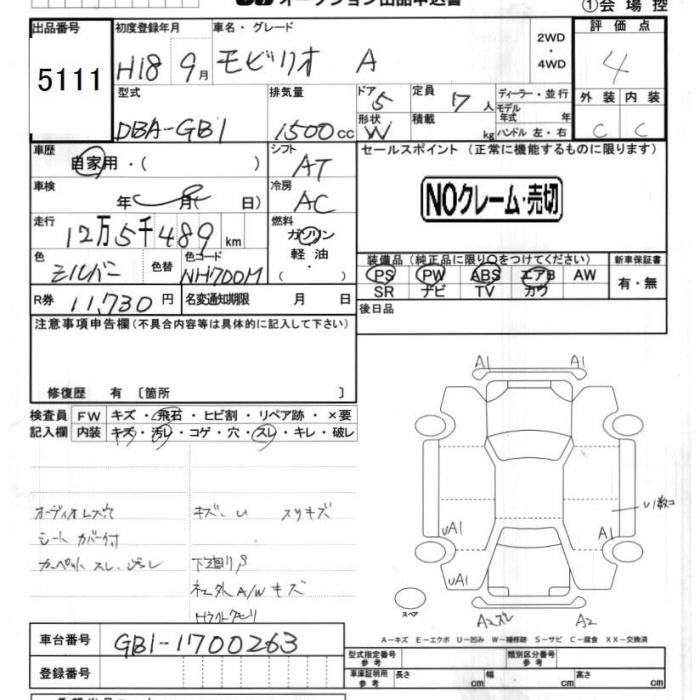 オークション出品申込書
①会場控
出品番号 初度登録年月 車名・グレード 2WD・4WD 評価点
5111 H18 9月 モビリオ A 4
型式 排気量 ドア 5 定員 7人 ディーラー・並行 外装 内装
DBA-GB1 1500cc 形状 W 積載 kg モデル年式 年 ハンドル 左・右 C C
車歴 自家用・( ) シフト AT セールスポイント (正常に機能するものに限ります)
車検 年 月( 日) 冷房 AC NOクレーム・売切
走行 12万5千489km 燃料 ガソリン 軽油・( )
色 シルバー 色替 色コード NH700M
装備品(純正品に限り○をつけてください) 新車保証書
PS PW ABS エアB AW 有・無
SR ナビ TV カワ
R券 11,730円 名変通知期限 月 日 後日品
注意事項申告欄(不具合内容等は具体的に記入して下さい)
修復歴 有 〔箇所 〕
検査員 FW キズ・飛石・ヒビ割・リペア跡・×要
記入欄 内装 キズ・汚レ・コゲ・穴・スレ・キレ・破レ
オーディオレス穴 キズ・U スリキズ
シートカバー付
カーペットスレ、汚レ 下廻りサビ
A/Wキズ
A1 A1
U1数コ
UA1 A1
UA1
スペア A2スレ A2
A-キズ E-エクボ U-凹み W-補修跡 S-サビ C-腐食 XX-交換済
車台番号 GB1-1700263
型式指定番号 参考 類別区分番号 参考
登録番号 車庫証明用 参考 長さ cm 幅 cm 高さ cm